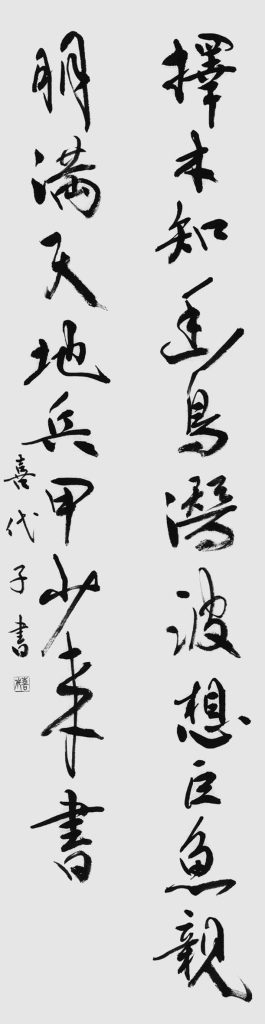 擇木知幽鳥潛波想巨魚親
朋満天地兵甲少来書
喜代子書